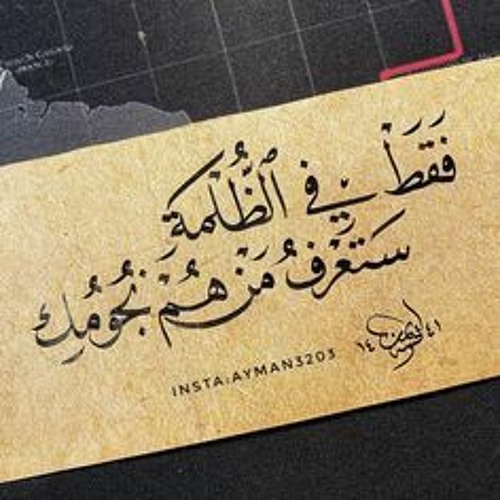 فَقَطْ فِي ٱلظُّلْمَةِ
سَتَعْرِفُ مَنْ هُمْ نُجُومُك
INSTA:AYMAN3203